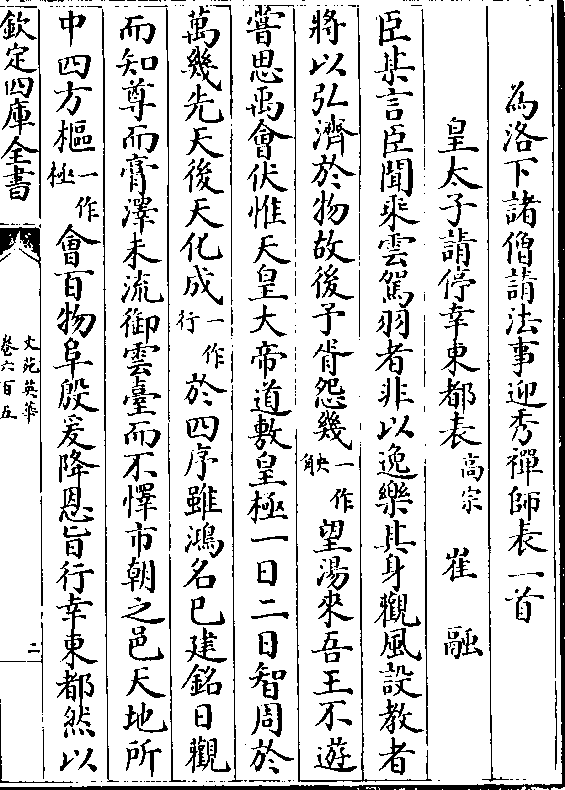 為洛下諸僧請法事迎秀禪師表一首
皇太子請停幸東都表 高宗 崔融
臣某言臣聞乘雲駕羽者非以逸樂其身觀風設教者
將以弘濟於物故後予胥怨幾一作觖望湯來吾王不遊
嘗思禹會伏惟天皇大帝道敷皇極一日二日智周於
萬幾先天後天化成一作行於四序雖鴻名已建銘日觀
而知尊而膏澤未流御雲臺而不懌市朝之邑天地所
中四方樞一作極會百物阜殷爰降恩旨行幸東都然以
欽定四庫全書
文苑英華
卷六百五
二